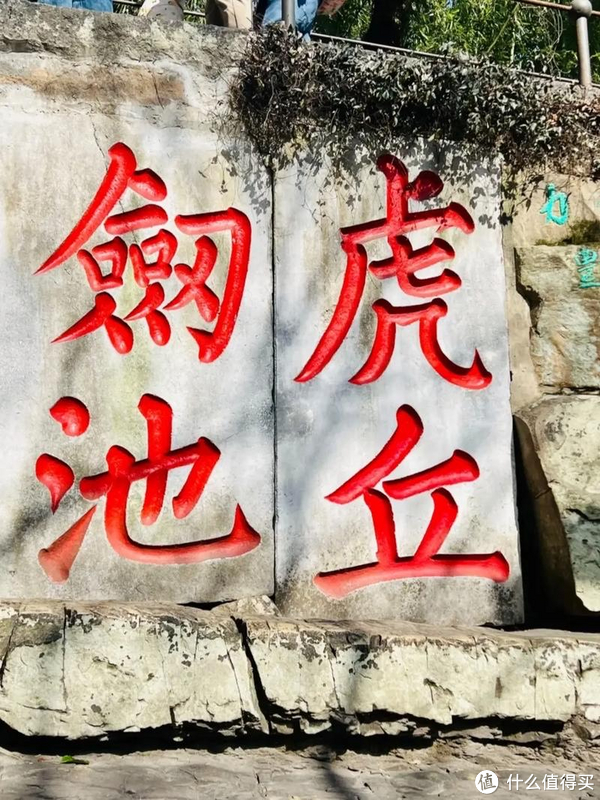 虎丘
劔池
值 什么值得买